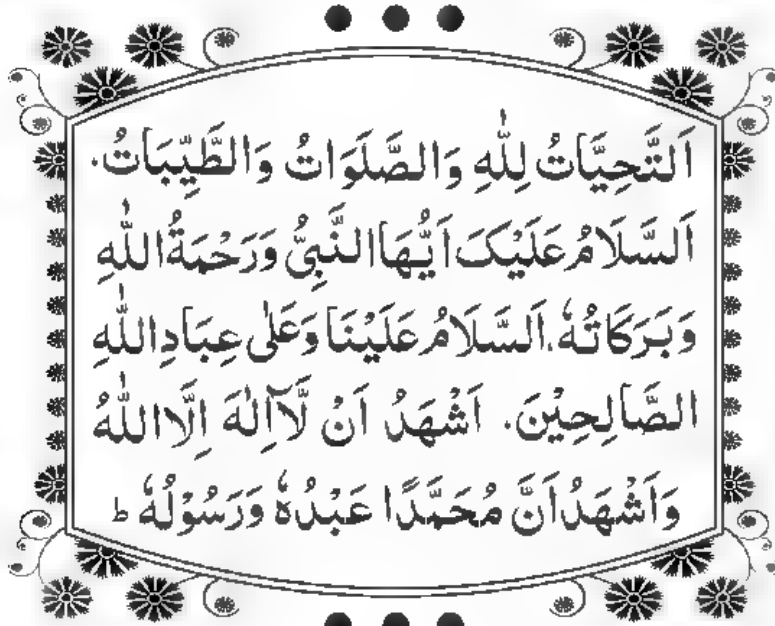 اَلتَّحِيَّاتُ لِلّٰهِ وَالصَّلَوَاتُ وَالطَّيِّبَاتُ.
اَلسَّلَامُ عَلَيْکَ اَيُّهَا النَّبِیُّ وَرَحْمَةُ اللّٰهِ
وَبَرَکَاتُهٗ. اَلسَّلَامُ عَلَيْنَا وَعَلٰی عِبَادِ اللّٰهِ
الصَّالِحِيْنَ. اَشْهَدُ اَنْ لَّآ اِلٰهَ اِلَّا اللّٰهُ
وَاَشْهَدُ اَنَّ مُحَمَّدًا عَبْدُهٗ وَرَسُوْلُهٗ ط